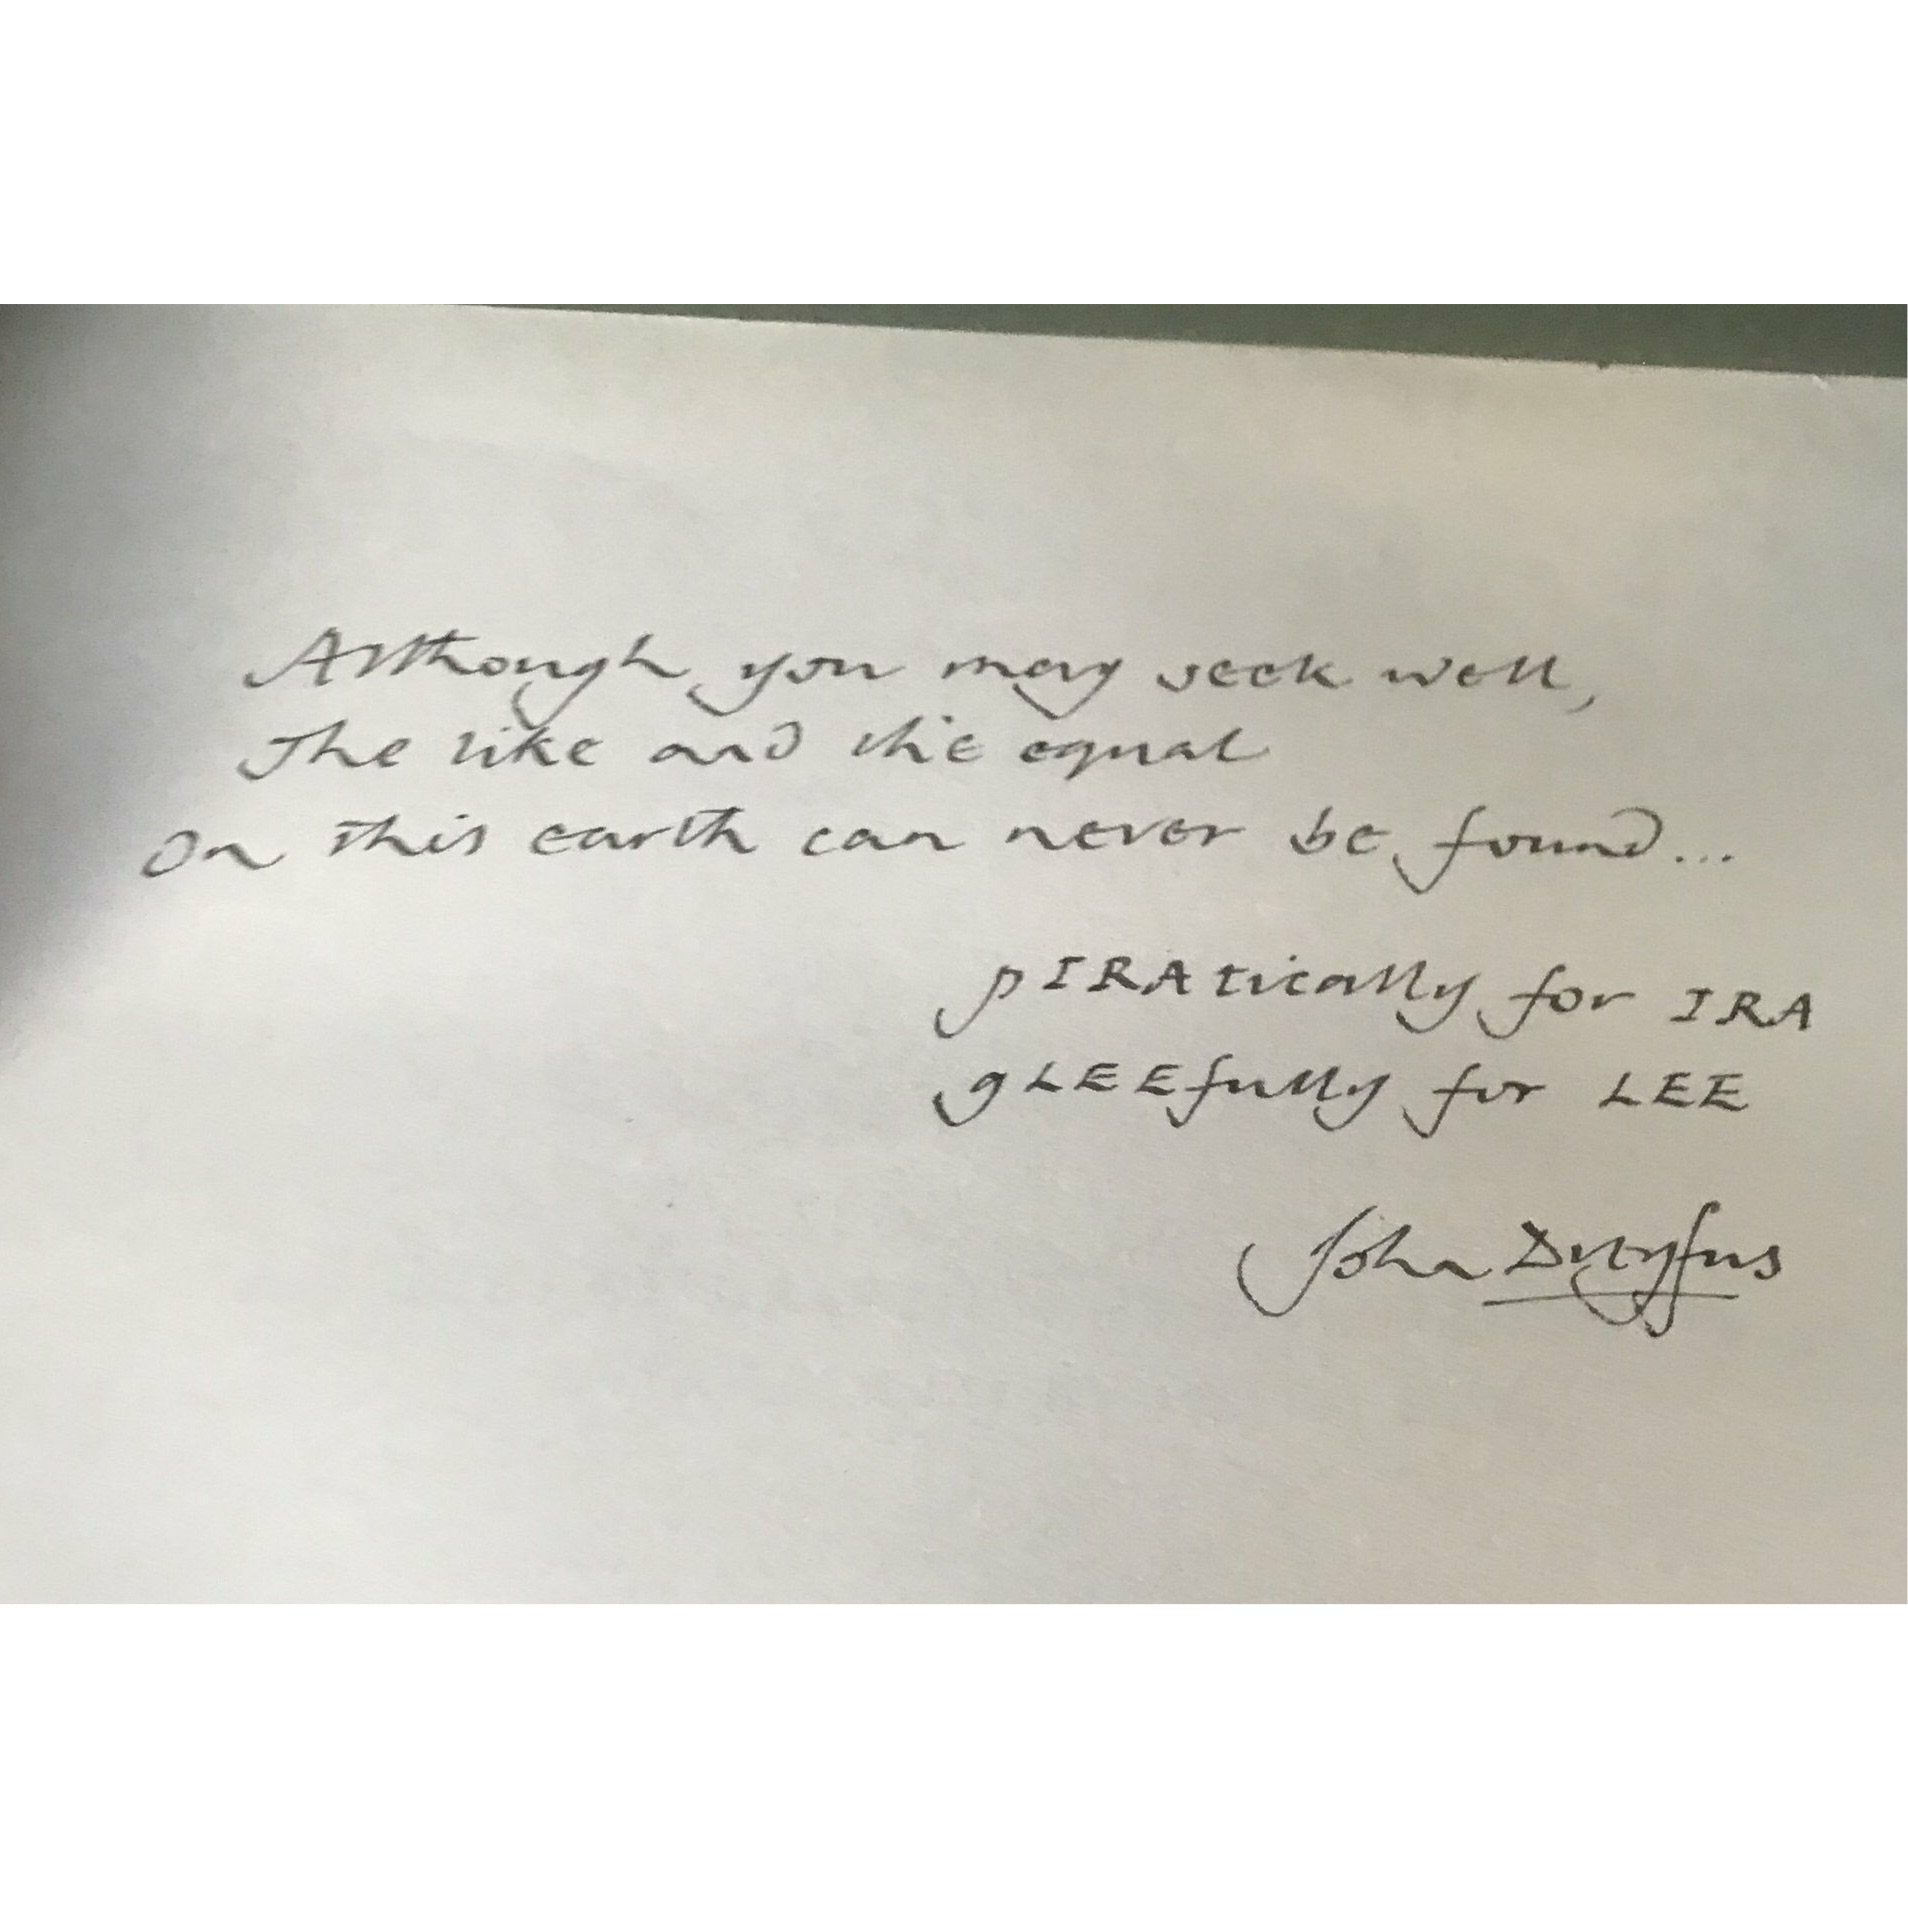 Although you may seek well,
The like and the equal
On this earth can never be found...
pIRAtically for IRA
gLEEfully for LEE
John Dreyfus